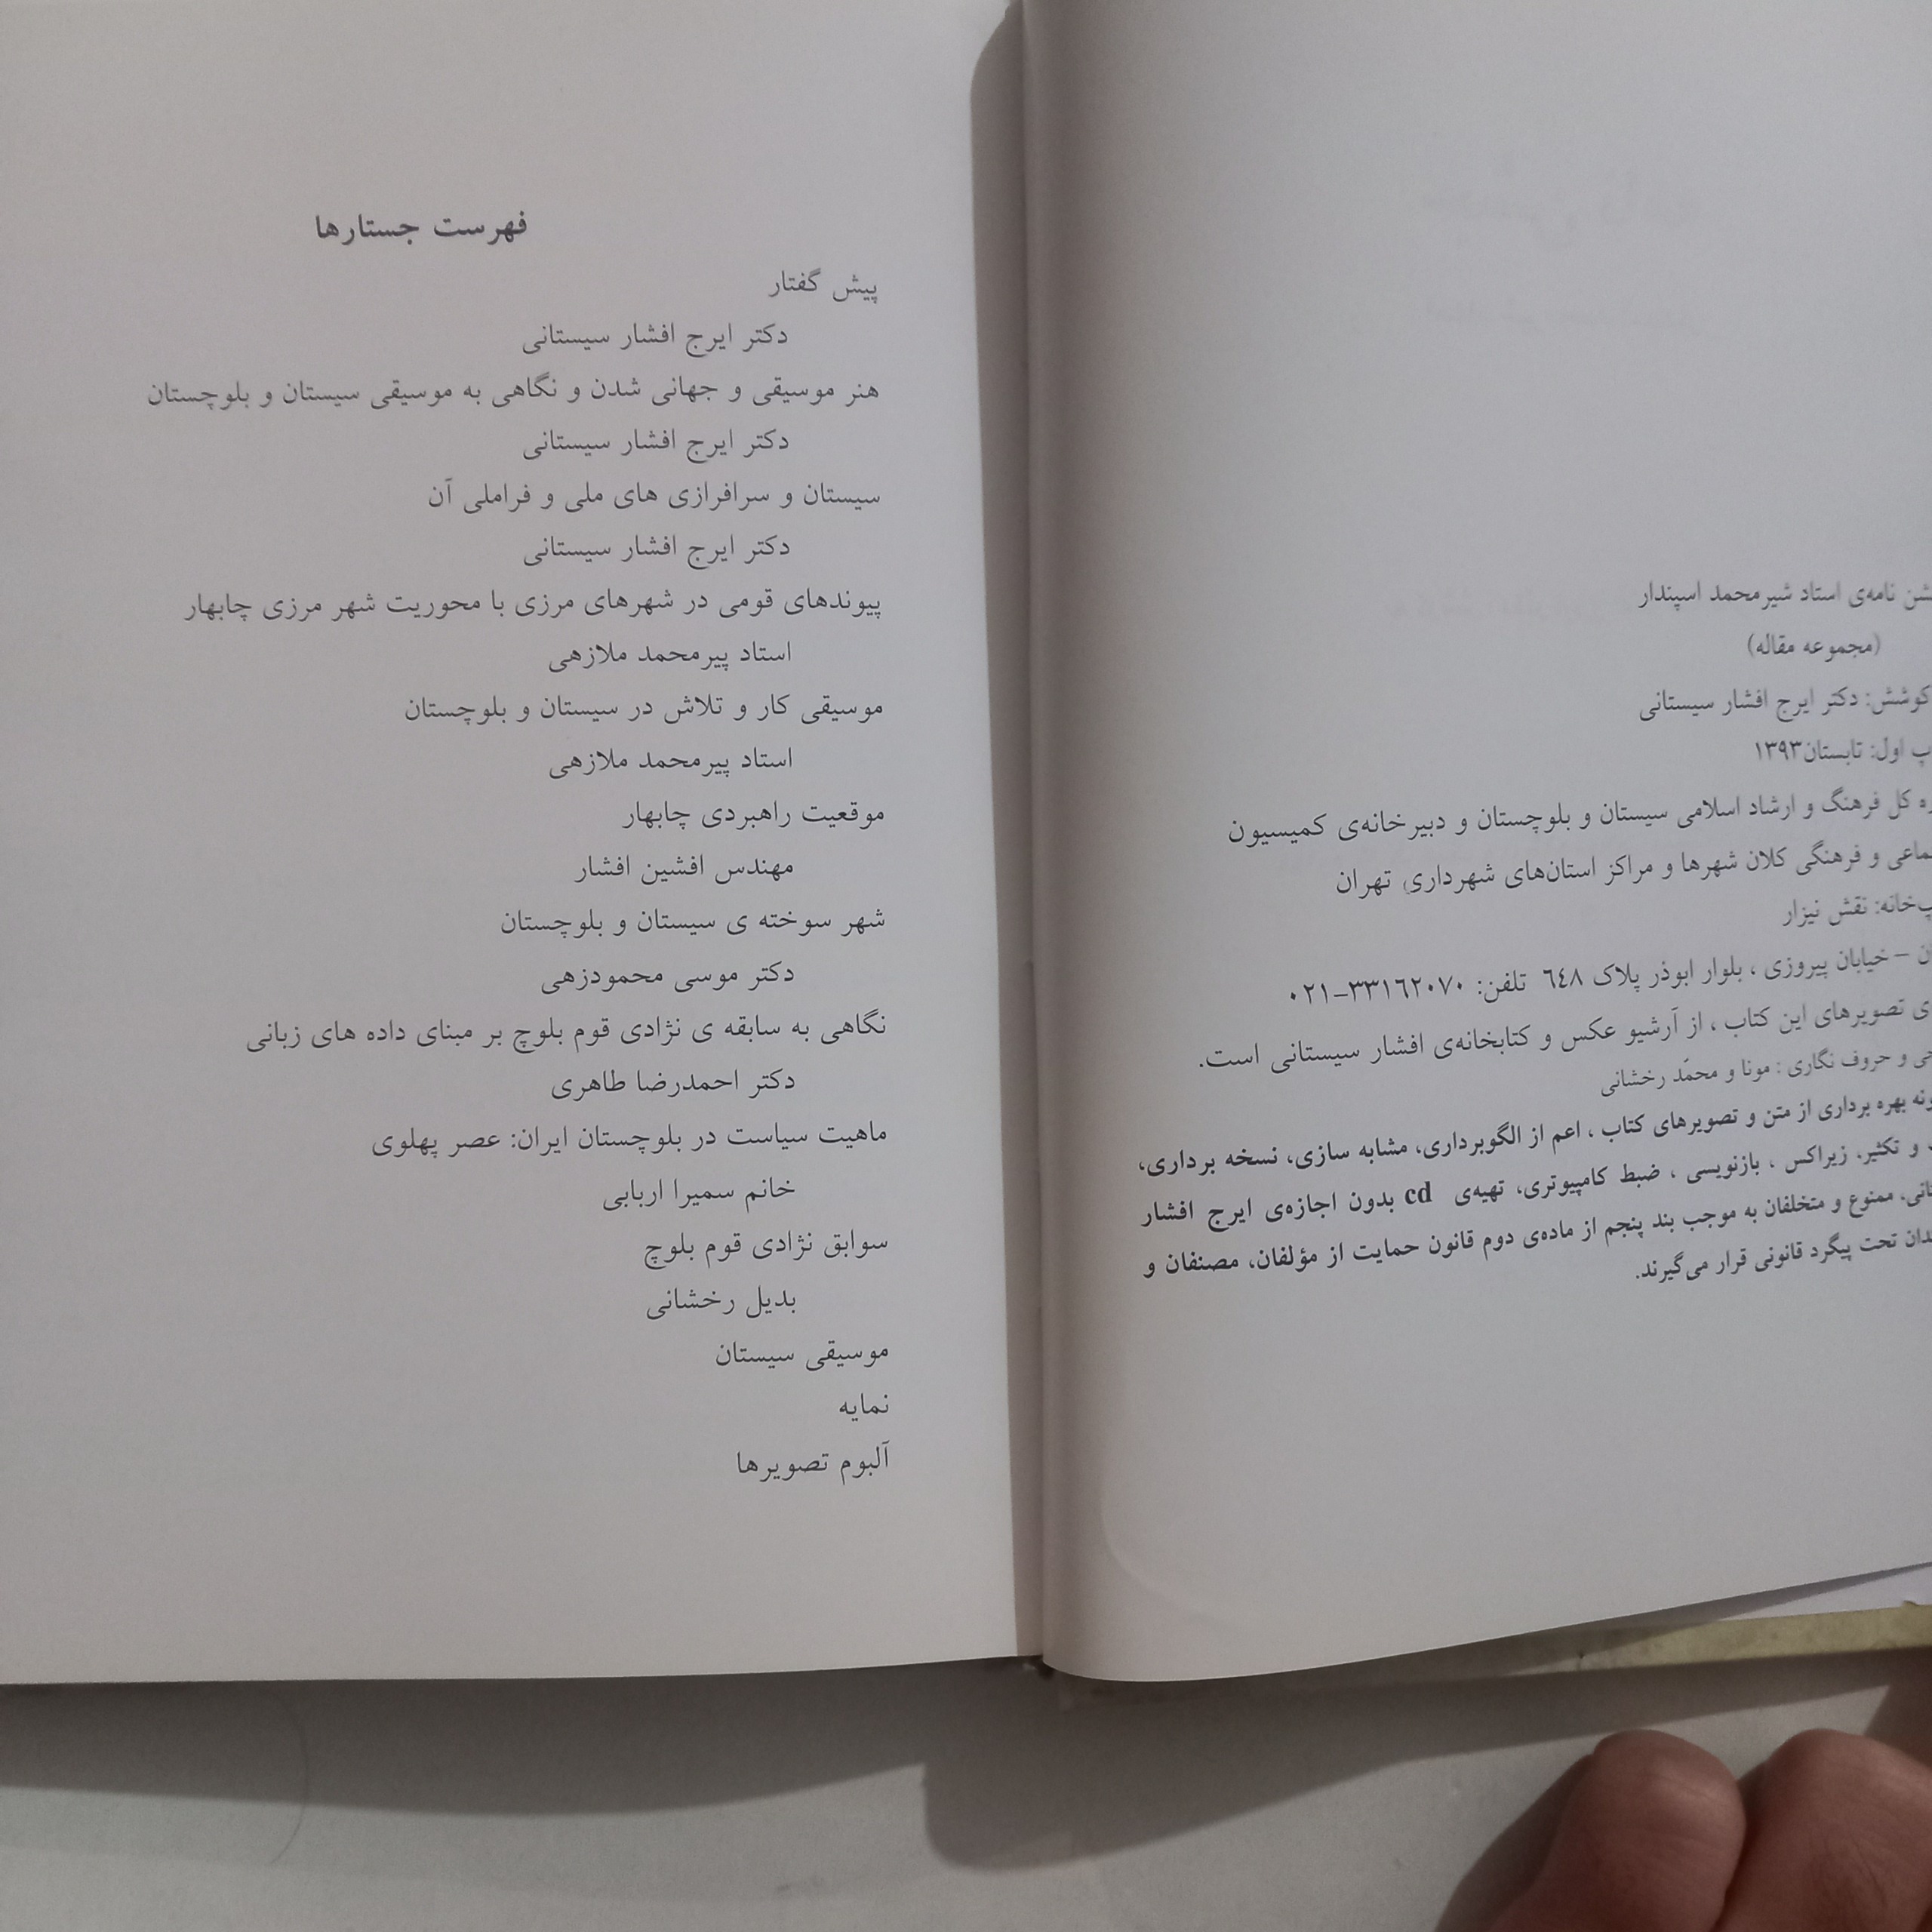 نامه‌ی استاد شیرمحمد اسپندار
(مجموعه مقاله)
کوشش: دکتر ایرج افشار سیستانی
اول: تابستان۱۳۹۳
کل فرهنگ و ارشاد اسلامی سیستان و بلوچستان و دبیرخانه‌ی کمیسیون
و فرهنگی کلان شهرها و مراکز استان‌های شهرداری تهران
نقش نیزار
– خیابان پیروزی ، بلوار ابوذر پلاک ٦٤٨ تلفن: ۳۳۱٦۲۰۷۰-۰۲۱
تصویرهای این کتاب ، از آرشیو عکس و کتابخانه‌ی افشار سیستانی است.
و حروف نگاری : مونا و محمّد رخشانی
بهره برداری از متن و تصویرهای کتاب ، اعم از الگوبرداری، مشابه سازی، نسخه برداری،
و تکثیر، زیراکس ، بازنویسی ، ضبط کامپیوتری، تهیه‌ی cd بدون اجازه‌ی ایرج افشار
ممنوع و متخلفان به موجب بند پنجم از ماده‌ی دوم قانون حمایت از مؤلفان، مصنفان و
تحت پیگرد قانونی قرار می‌گیرند.
فهرست جستارها
پیش گفتار
دکتر ایرج افشار سیستانی
هنر موسیقی و جهانی شدن و نگاهی به موسیقی سیستان و بلوچستان
دکتر ایرج افشار سیستانی
سیستان و سرافرازی های ملی و فراملی آن
دکتر ایرج افشار سیستانی
پیوندهای قومی در شهرهای مرزی با محوریت شهر مرزی چابهار
استاد پیرمحمد ملازهی
موسیقی کار و تلاش در سیستان و بلوچستان
استاد پیرمحمد ملازهی
موقعیت راهبردی چابهار
مهندس افشین افشار
شهر سوخته ی سیستان و بلوچستان
دکتر موسی محمودزهی
نگاهی به سابقه ی نژادی قوم بلوچ بر مبنای داده های زبانی
دکتر احمدرضا طاهری
ماهیت سیاست در بلوچستان ایران: عصر پهلوی
خانم سمیرا اربابی
سوابق نژادی قوم بلوچ
بدیل رخشانی
موسیقی سیستان
نمایه
آلبوم تصویرها